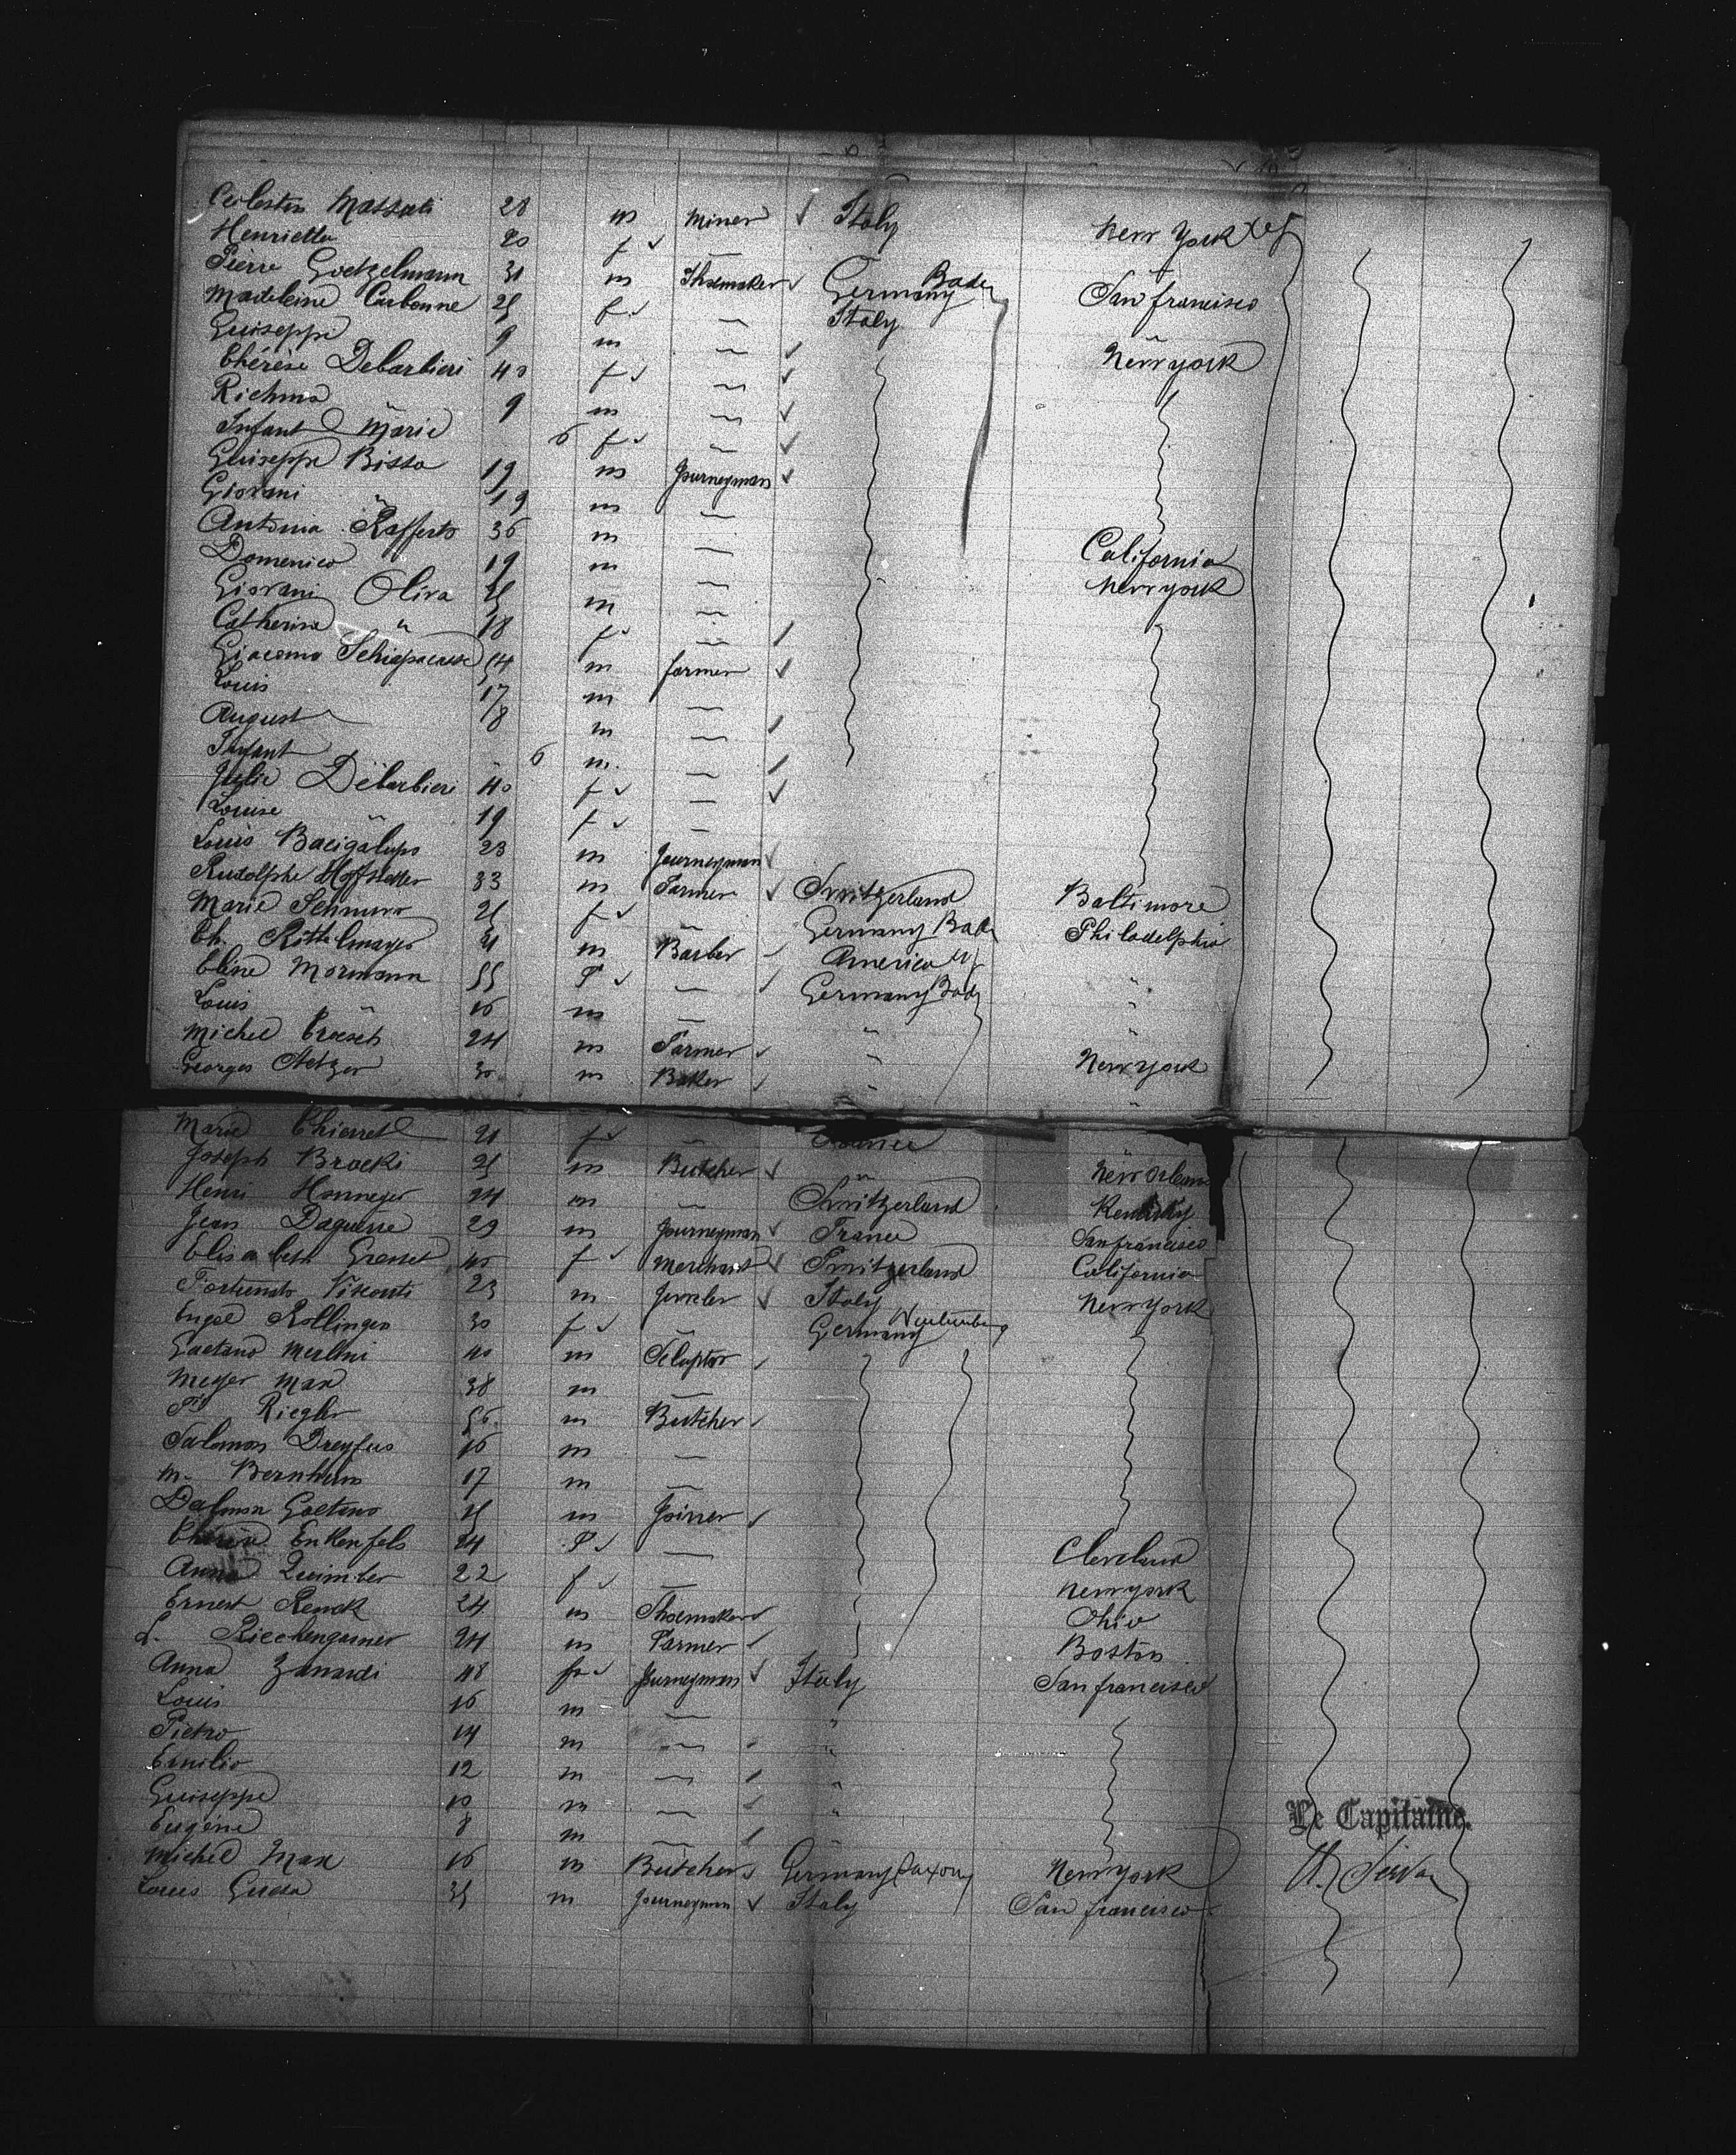 Celestin Massati 28 m Miner ✓ Italy New York
Henrietta 20 f ✓ —
Pierre Goetzelmann 31 m Shoemaker ✓ Germany Baden San francisco
Madeleine Carbonne 25 f ✓ — Italy "
Guiseppe 9 m — ✓ New york
Thérèse Debarbieri 40 f ✓ — ✓
Richma " 9 m — ✓
Infant Marie 6 f ✓ — ✓
Guiseppe Bisso 19 m Journeyman ✓
Giovani " 19 m —
Antonia Rafferto 36 m — California
Domenico " 19 m — New york
Giovani Oliva 25 m —
Catherina " 18 f ✓ —
Giacomo Schiapacasse 54 m farmer ✓
Louis 17 m —
August 8 m —
Infant 6 m —
Julie Debarbieri 40 f ✓ — ✓
Louise " 19 f ✓ —
Louis Bacigalupo 23 m Journeyman ✓
Rudolphe Hoffstetter 33 m Farmer ✓ Switzerland Baltimore
Marie Schnurr 21 f ✓ — Germany Bade Philadelphia
Ch. Rittelmayer 31 m Barber ✓ America "
Eline Mormann 55 f ✓ — Germany Bade "
Louis " 16 m — " "
Michel Troesch 24 m Farmer ✓ " New york
Georges Metzger 30 m Baker ✓ " "
Marie Thierret 21 f ✓ — France
Joseph Brocki 25 m Butcher ✓ " New Orleans
Henri Honneger 24 m — Switzerland Kentucky
Jean Daguerre 29 m Journeyman ✓ France San francisco
Elisabeth Grosset 45 f ✓ Merchant ✓ Switzerland California
Fortunato Visconti 23 m Jeweler ✓ Italy New york
Engel Rollinger 30 f ✓ — Germany Wurtemberg
Gaetano Merlini 40 m Sculptor ✓
Meyer Max 38 m —
Riegler 56 m Butcher ✓
Salomon Dreyfus 16 m —
M. Bernheim 17 m —
Dalmon Gaetano 25 m Joiner ✓
Enkenfels 24 f ✓ — Cleveland
Anna Quimber 22 f ✓ — New york
Ernest Renck 24 m Shoemaker ✓ Ohio
L. Riechengasner 24 m Farmer ✓ Boston
Anna Zanardi 48 f ✓ Journeyman ✓ Italy San francisco
Louis 16 m — "
Pietro 14 m — "
Emilio 12 m — "
Guiseppe 10 m — "
Eugène 8 m —
Le Capitaine.
Michel Max 16 m Butcher ✓ Germany Saxony New york
Louis Guesa 35 m Journeyman ✓ Italy San francisco